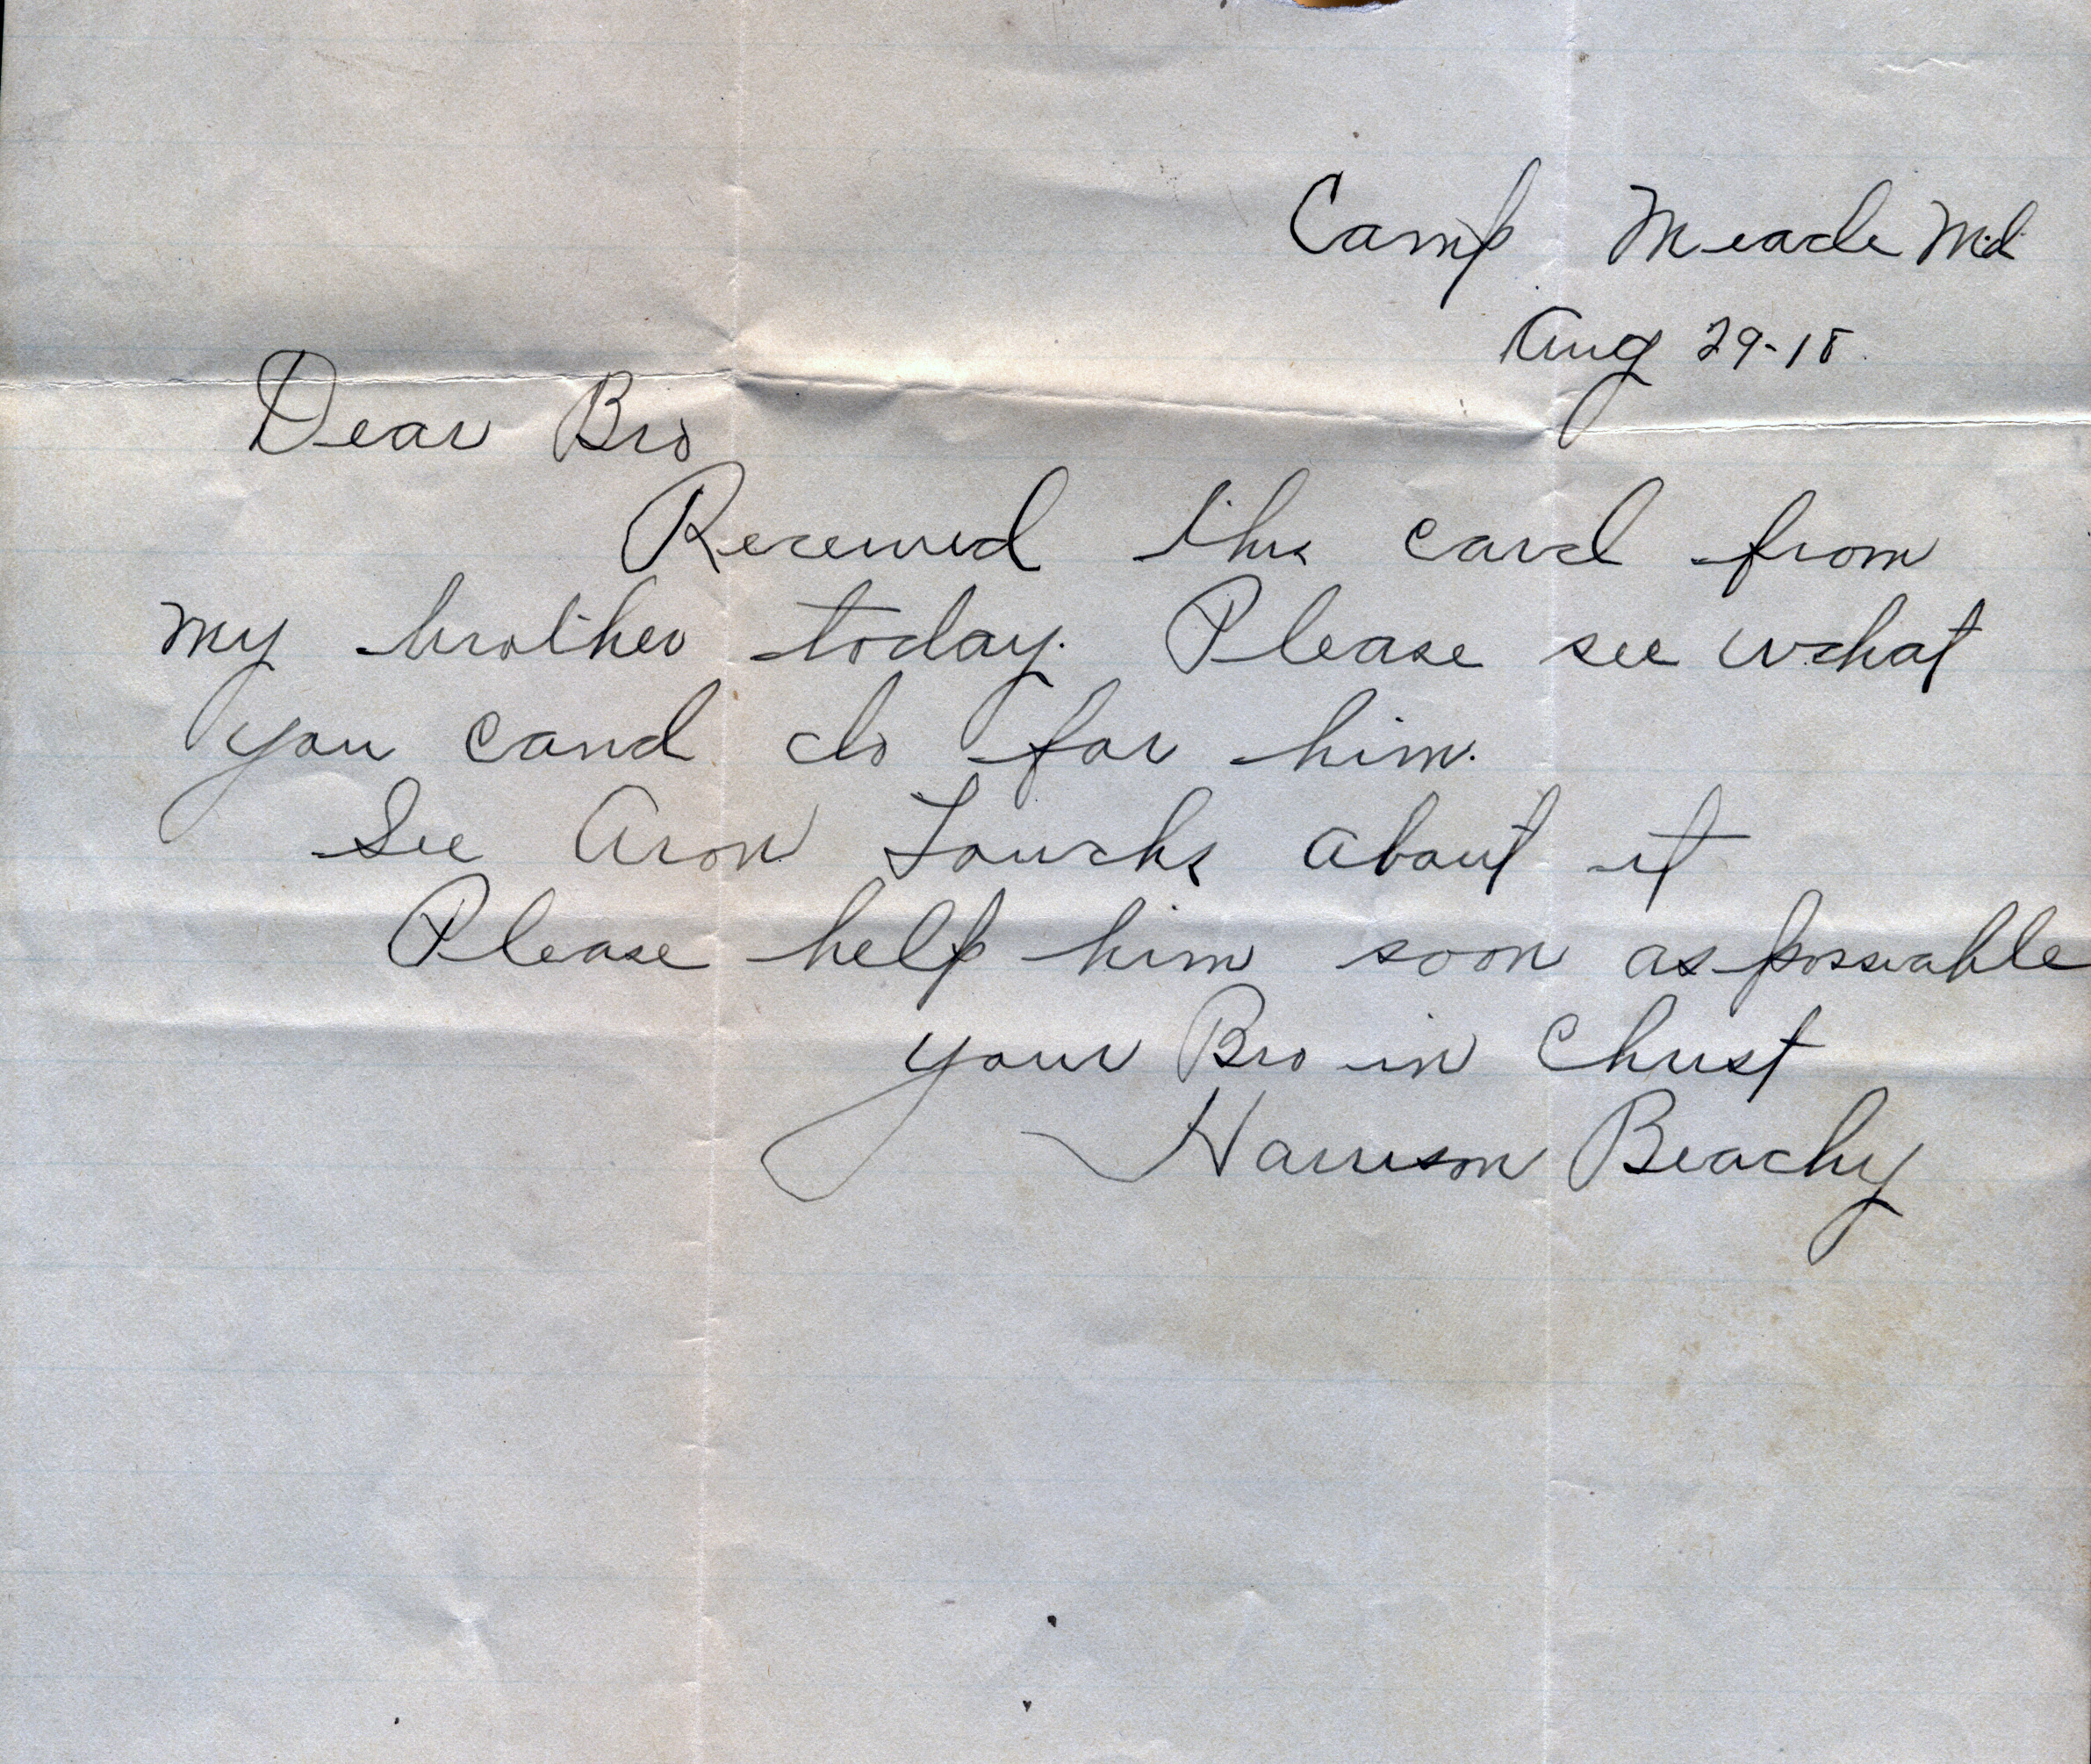 Camp Meade Md.
Aug 29-18.
Dear Bro
Received this card from
my brother today. Please see what
you cand do for him.
See Aron Loucks about it
Please help him soon as possiable
your Bro in Christ
Harrison Beachy